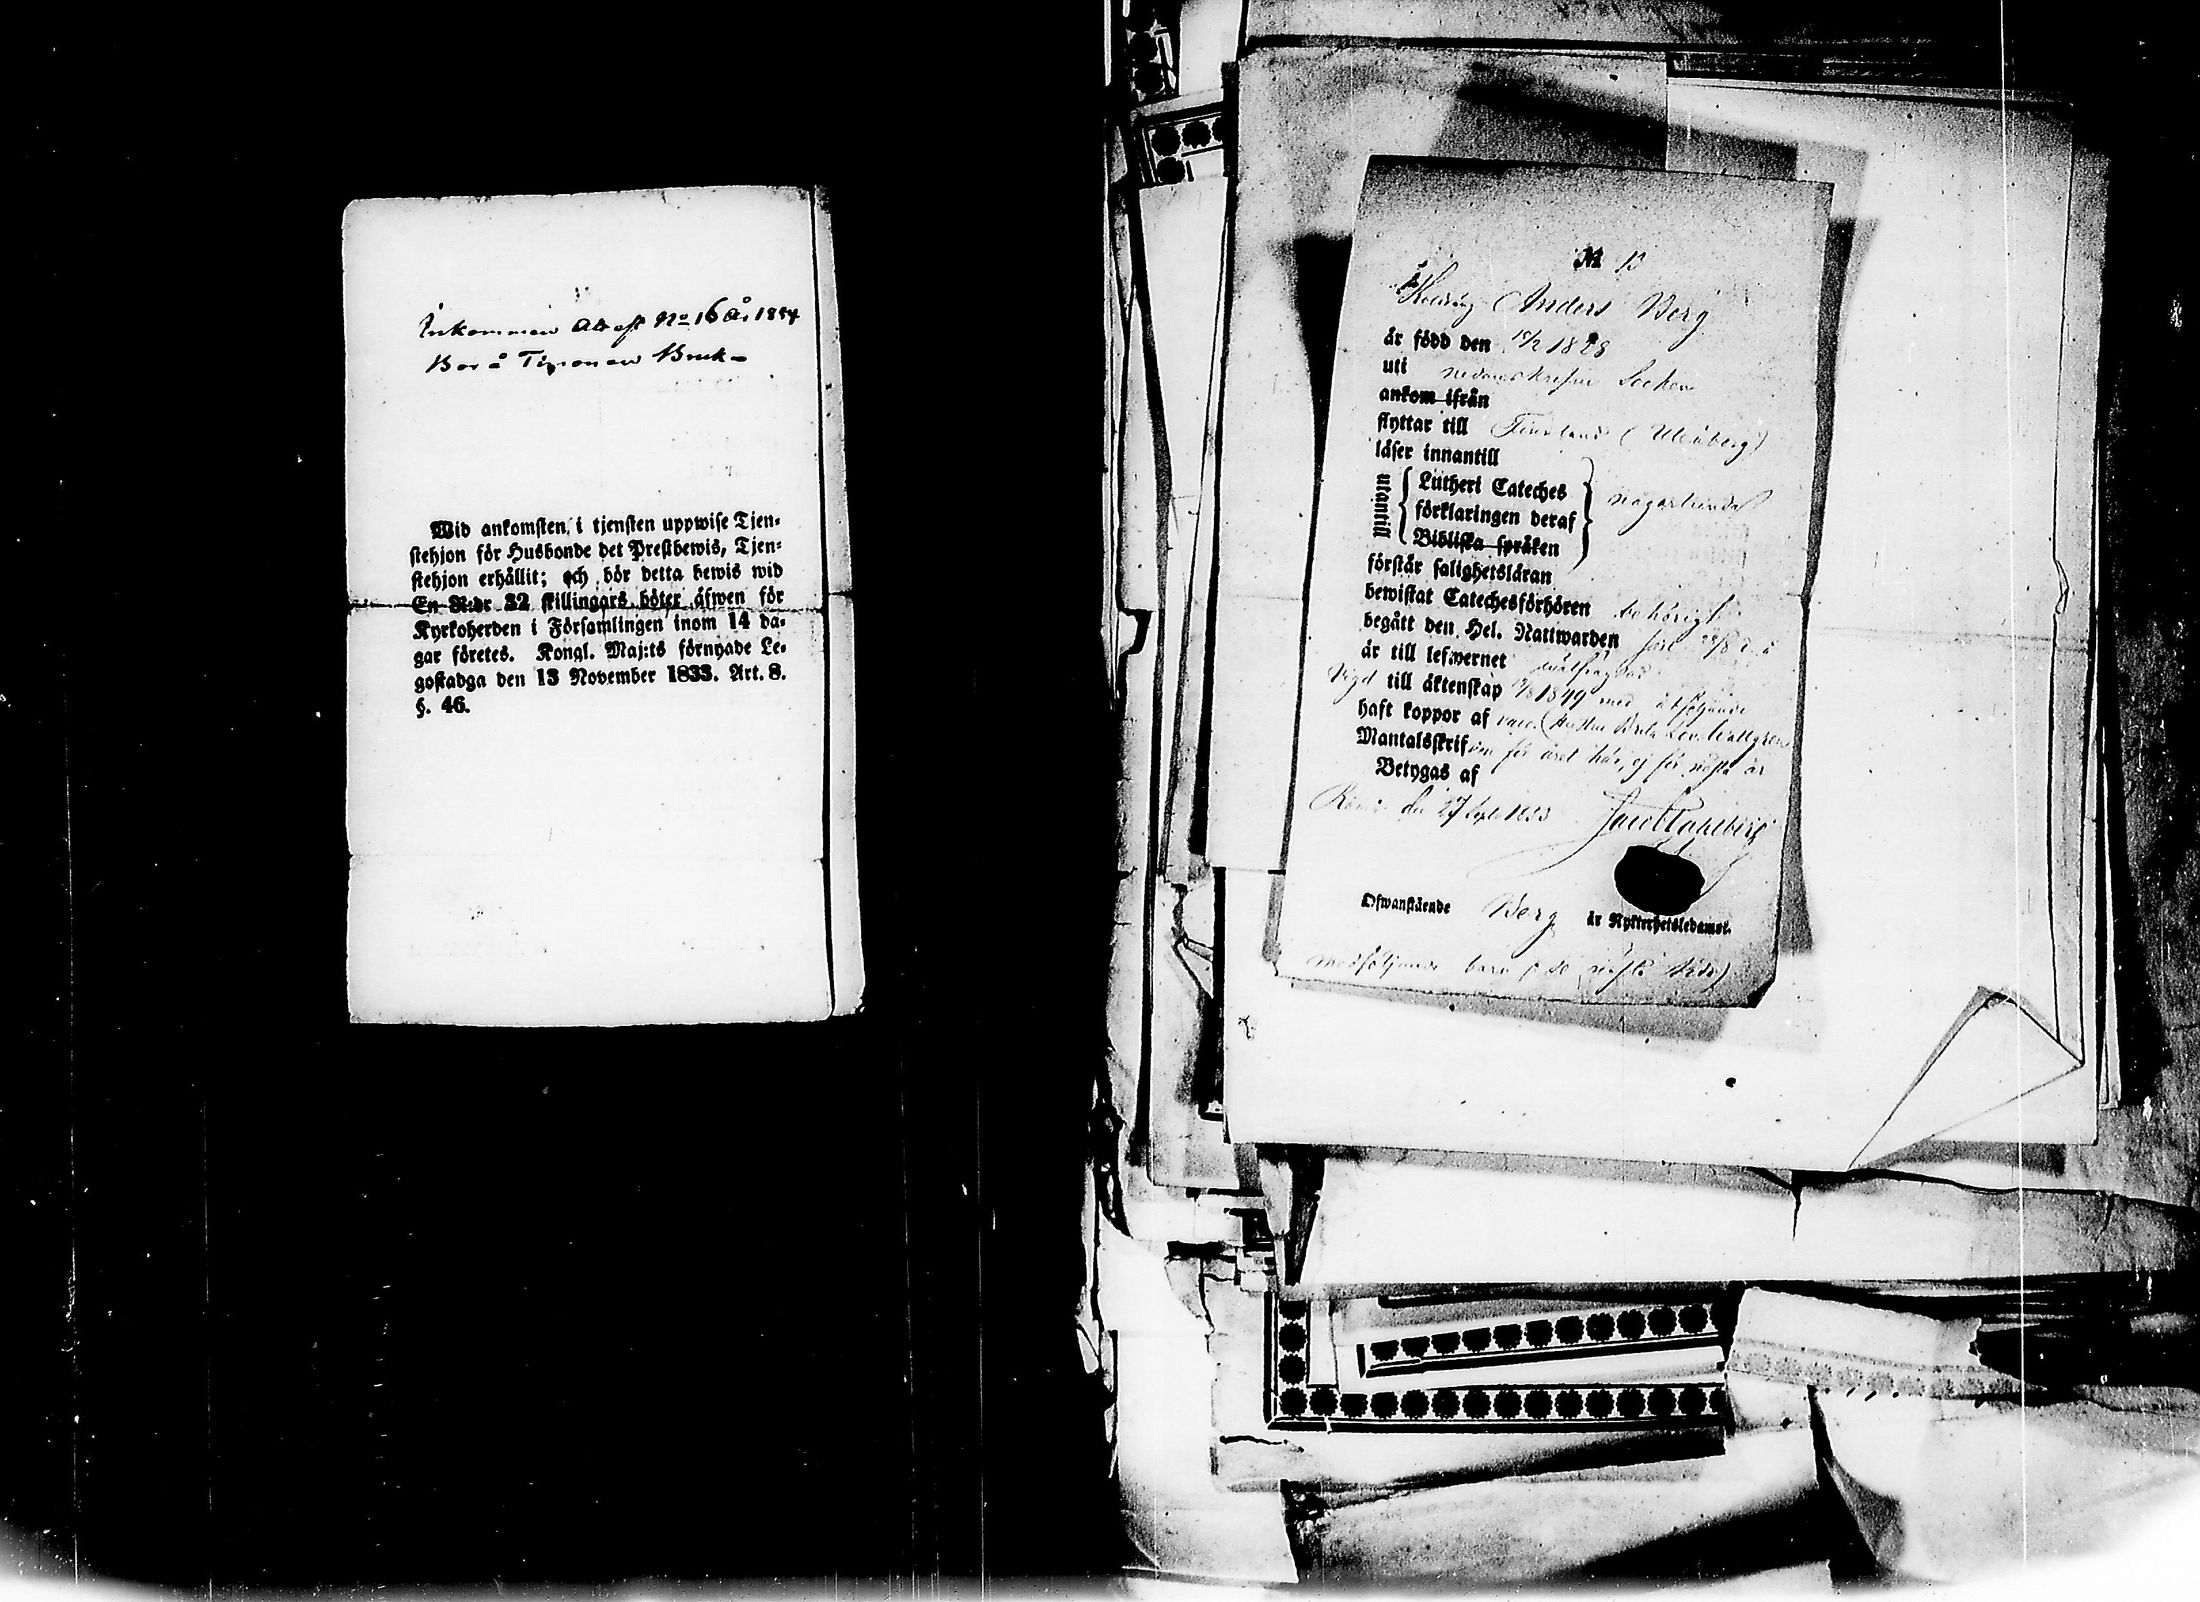 Inkommen Attest No 16 år 1854
Bor å Timonen Bruk
Wid ankomsten i tjensten uppwise Tjen-
stehjon för Husbonde det Prestbewis, Tjen-
stehjon erhållit; och bör detta bewis wid
En R:dr 32 skillingars böter äfwen för
Kyrkoherden i Församlingen inom 14 da-
gar företes. Kongl. Maj:ts förnyade Le-
gostadga den 13 November 1833. Art. 8.
§. 46.
№ 13
Anders Berg
är född den 1828
uti nedanskrefne Socken
ankom ifrån
flyttar till Finland (Uleåborg)
läser innantill
utantill
Lutheri Cateches
förklaringen deraf
Bibliska språken
någorlunda
förstår salighetsläran
bewistat Catechesförhören behörigt
begått den Hel. Nattwarden
är till lefwernet wälfrägdad
Vigd till äktenskap 1849 med åtföljande
haft koppor af vacc. Hustru Brita
Mantalsskrifven för året här, ej för nästa år
Betygas af
den 27 Sept 1853
Ofwanstående Berg är Nykterhetsledamot.
medföljande barn (se nästa sida)